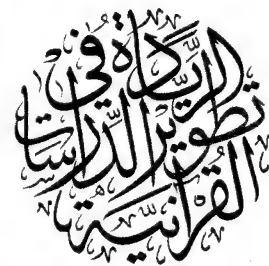 الرِّيَادَة في
تَطْوير الدِّرَاسَات
القُرْآنيَّة